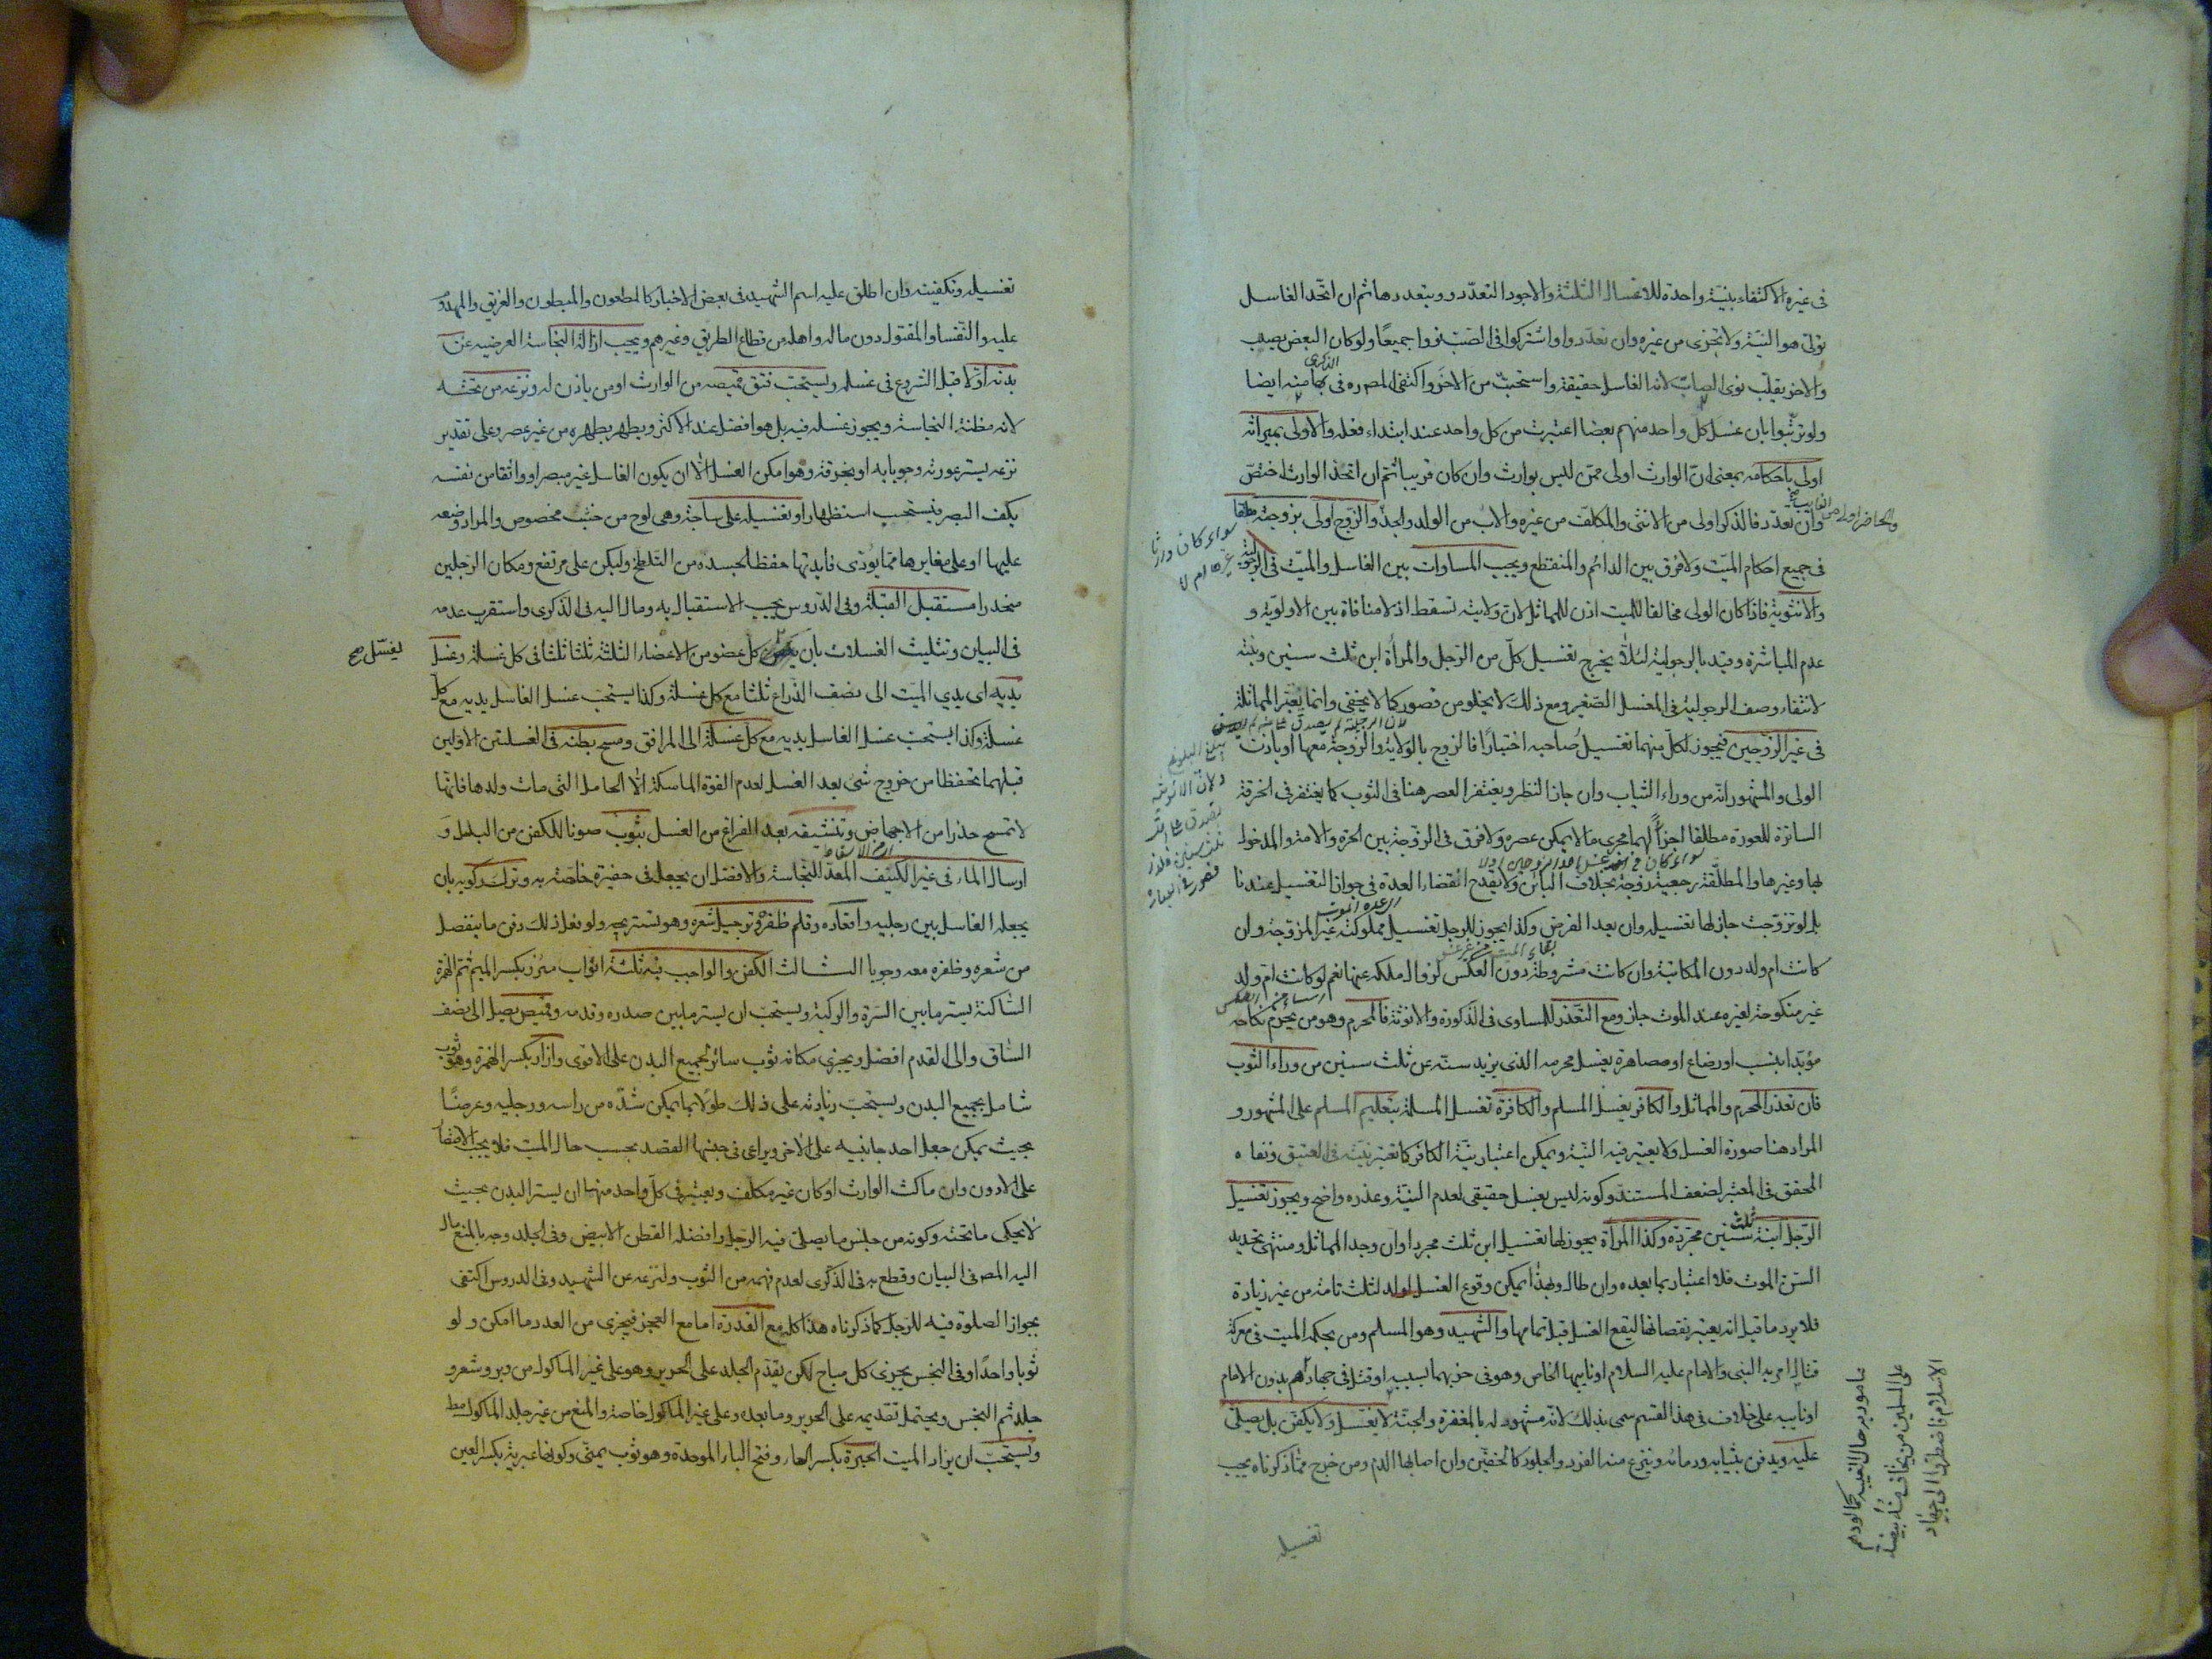 في غيره الاكتفاء بنية واحدة للاغسال الثلثة والاجود التعدد وبتعددها ثم ان اتحد الغاسل
تولى هو النية ولا تجزى من غيره وان تعددوا واشتركوا في الصب نووا جميعا ولو كان البعض يصب
والاخر يقلب نوى الصاب لانه الغاسل حقيقة واستحب من الاخر واكتفى المصره في الذكرى بها منه ايضا
ولو ترتبوا بان غسل كل واحد منهم بعضا اعتبرت من كل واحد عند ابتداء فعله والاولى بميراثه
اولى باحكامه بمعنى ان الوارث اولى ممن ليس بوارث وان كان قريبا ثم ان اتحد الوارث اختص
وان تعدد فالذكر اولى من الانثى والمكلف من غيره والاب من الولد والجد والزوج اولى بزوجته مطلقا
في جميع احكام الميت ولا فرق بين الدائم والمنقطع ويجب المساوات بين الغاسل والميت في الرجولية
والانثوية فاذا كان الولى مخالفا للميت اذن للمماثل لان ولايته تسقط اذ لا منافاة بين الاولوية و
عدم المباشرة وقيد بالرجولية لئلا يخرج تغسيل كل من الرجل والمرأة ابن ثلث سنين وبنته
لانتفاء وصف الرجولية في المغسل الصغير ومع ذلك لا يخلو من قصور كما لا يخفى وانما يعتبر المماثلة
في غير الزوجين فيجوز لكل منهما تغسيل صاحبه اختيارا فالزوج بالولاية والزوجة معها او باذن
الولى والمشهور انه من وراء الثياب وان جاز النظر ويغتفر العصر هنا في الثوب كما يغتفر في الخرقة
الساترة للعورة مطلقا اجراء لهما مجرى ما لا يمكن عصره ولا فرق في الزوجة بين الحرة والامة والمدخول
بها وغيرها والمطلقة رجعية زوجة بخلاف البائن ولا يقدح انقضاء العدة في جواز التغسيل عندنا
بل لو تزوجت جاز لها تغسيله وان بعد الفرض وكذا يجوز للرجل تغسيل مملوكته غير المزوجة وان
كانت ام ولد دون المكاتبة وان كانت مشروطة دون العكس لزوال ملكه عنها نعم لو كانت ام ولد
غير منكوحة لغيره عند الموت جاز ومع التعذر للمساوى في الذكورة والانوثة فالمحرم وهو من يحرم نكاحه
مؤبدا بنسب او رضاع او مصاهرة يغسل محرمه الذى يزيد سنه عن ثلث سنين من وراء الثوب
فان تعذر المحرم والمماثل والكافر يغسل المسلم والكافرة تغسل المسلمة بتعليم المسلم على المشهور و
المراد هنا صورة الغسل ولا يعتبر فيه النية ويمكن اعتبار نية الكافر كما تعتبر نيته في العتق ونفاه
المحقق في المعتبر لضعف المستند وكونه ليس بغسل حقيقى لعدم النية وعذره واضح ويجوز تغسيل
الرجل ابنة ثلث سنين مجردة وكذا المرأة يجوز لها تغسيل ابن ثلث مجردا وان وجد المماثل ومنتهى تحديد
السن الموت فلا اعتبار بما بعده وان طال وبهذا يمكن وقوع الغسل لولد لثلث تامة من غير زيادة
فلا يرد ما قيل انه يعتبر نقصانها ليقع الغسل قبل تمامها والشهيد وهو المسلم ومن بحكمه الميت في معركة
قتال امر به النبى والامام عليه السلام او نايبهما الخاص وهو في حزبهما بسببه او قتل في جهاد بدون الامام
او نايبه على خلاف في هذا القسم سمى بذلك لانه مشهود له بالمغفرة والجنة لا يغسل ولا يكفن بل يصلى
عليه ويدفن بثيابه ودمائه وينزع منه الفرد والجلود كالخفين وان اصابها الدم ومن خرج عما ذكرناه يجب
تغسيله
والحاضر اولى من الغايب صح
سواء كان وارثا غيرها ام لا
لان الرجلية لم يصدق على من لم يبلغ البلوغ
سواء كان في اخذ غسل احد الزوجين اولا
مامور به حال الغيبة كما لو دهم
على المسلمين من يخاف منه بيضة
الاسلام فاضطروا الى جهاد
تغسيله وتكفينه وان اطلق عليه اسم الشهيد في بعض الاخبار كالمطعون والمبطون والغريق والمهدوم
عليه والنفساء والمقتول دون ماله واهله من قطاع الطريق وغيرهم ويجب ازالة النجاسة العرضية عن
بدنه اولا قبل الشروع في غسله ويستحب فتق قميصه من الوارث او من ياذن له ونزعه من تحته
لانه مظنة النجاسة ويجوز غسله فيه بل هو افضل عند الاكثر ويطهر بطهره من غير عصر وعلى تقدير
نزعه يستر عورته وجوبا به او بخرقة وهو امكن الغسل الا ان يكون الغاسل غير مبصر او واثقا من نفسه
بكف البصر فيستحب استظهارا وتغسيله على ساجة وهى لوح من خشب مخصوص والمراد وضعه
عليها او على مغايرها مما يؤدى فايدتها حفظا لجسده من التلطخ وليكن على مرتفع ومكان الرجلين
منحدرا مستقبل القبلة وفي الدروس يجب الاستقبال به ومال اليه في الذكرى واستقرب عدمه
في البيان وتثليث الغسلات بان يغسل كل عضو من الاعضاء الثلثة ثلثا ثلثا في كل غسلة وغسل
يديه اى يدي الميت الى نصف الذراع ثلثا مع كل غسلة وكذا يستحب غسل الغاسل يديه مع كل
غسلة وكذا يستحب غسل الغاسل يديه مع كل غسلة الى المرافق ومسح بطنه في الغسلتين الاولين
قبلهما تحفظا من خروج شئ بعد الغسل لعدم القوة الماسكة الا الحامل التى مات ولدها فانها
لا تمسح حذرا من الاجهاض وتنشيفه بعد الفراغ من الغسل بثوب صونا للكفن من البلل و
ارسال الماء في غير الكنيف المعد للنجاسة والافضل ان يجعل في حفيرة خاصة به وترك ركوبه بان
يجعله الغاسل بين رجليه واقعاده وقلم ظفره وترجيل شعره وهو تسريحه ولو فعل ذلك دفن ما ينفصل
من شعره وظفره معه وجوبا الثالث الكفن والواجب منه ثلثة اثواب مئزر بكسر الميم ثم الهمزة
الساكنة يستر ما بين السرة والركبة ويستحب ان يستر ما بين صدره وقدمه وقميص يصل الى نصف
الساق والى القدم افضل ويجزى مكانه ثوب ساتر لجميع البدن على الاقوى وازار بكسر الهمزة وهو ثوب
شامل لجميع البدن ويستحب زيادته على ذلك طولا بما يمكن شده من راسه ورجليه وعرضا
بحيث يمكن جعل احد جانبيه على الاخر ويراعى في جنسها القصد بحسب حال الميت فلا يجب الاقتصار
على الادون وان ماكس الوارث او كان غير مكلف ويعتبر في كل واحد منها ان يستر البدن بحيث
لا يحكى ما تحته وكونه من جنس ما يصلى فيه الرجل وافضله القطن الابيض وفي الجلد وجه بالمنع مال
اليه المص في البيان وقطع به في الذكرى لعدم فهمه من الثوب ولنزعه عن الشهيد وفي الدروس اكتفى
بجواز الصلوة فيه للرجل كما ذكرناه هذا كله مع القدرة اما مع العجز فيجزى من العدد ما امكن ولو
ثوبا واحدا وفي الجنس يجزى كل مباح لكن يقدم الجلد على الحرير وهو على غير الماكول من وبر وشعر و
جلد ثم النجس ويحتمل تقديمه على الحرير وما بعده وعلى غير الماكول خاصة والمنع من غير جلد الماكول مط
ويستحب ان يزاد الميت الحبرة بكسر الحاء وفتح الباء الموحدة وهو ثوب يمنى وكونها عبرية بكسر العين
يغسل صح